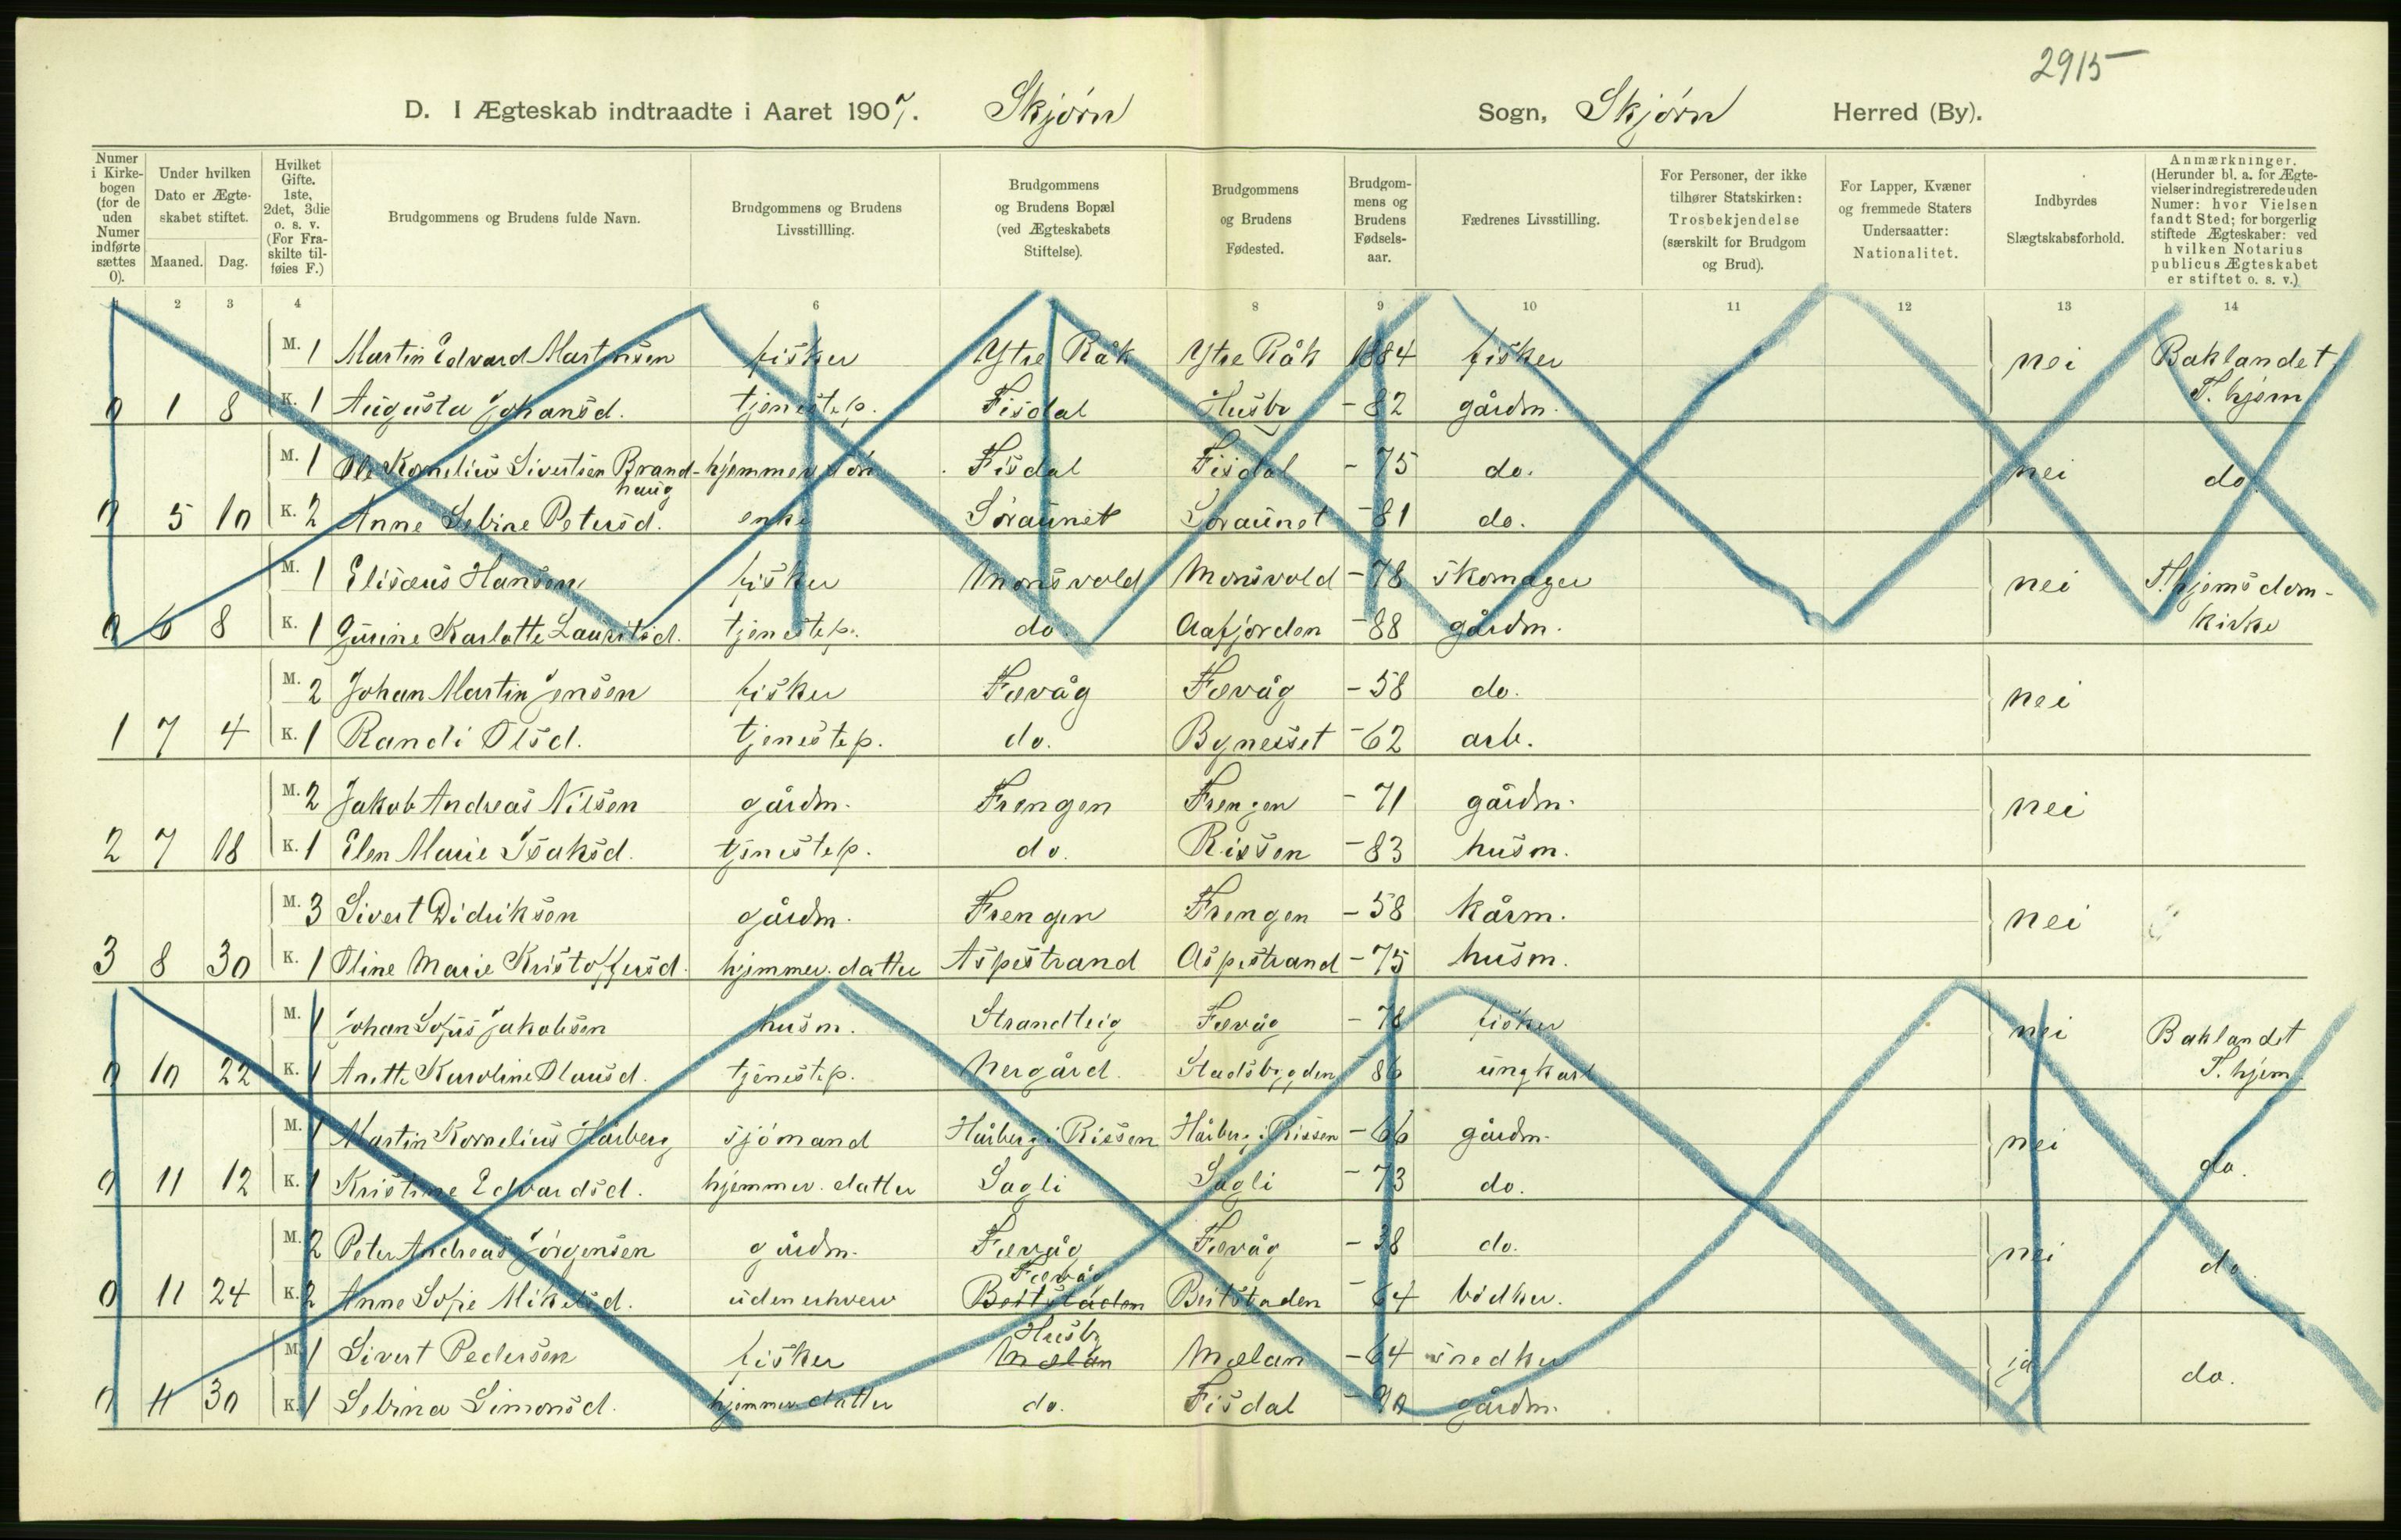 2915
D. I Ægteskab indtraadte i Aaret 1907. Skjørn Sogn, Skjørn Herred (By).
Numer i Kirkebogen (for de uden Numer indførte sættes 0).
Under hvilken Dato er Ægteskabet stiftet.
Maaned. Dag.
Hvilket Gifte. 1ste, 2det, 3die o. s. v. (For Fraskilte tilføies F.)
Brudgommens og Brudens fulde Navn.
Brudgommens og Brudens Livsstillling.
Brudgommens og Brudens Bopæl (ved Ægteskabets Stiftelse).
Brudgommens og Brudens Fødested.
Brudgommens og Brudens Fødselsaar.
Fædrenes Livsstilling.
For Personer, der ikke tilhører Statskirken: Trosbekjendelse (særskilt for Brudgom og Brud).
For Lapper, Kvæner og fremmede Staters Undersaatter: Nationalitet.
Indbyrdes Slægtskabsforhold.
Anmærkninger. (Herunder bl. a. for Ægtevielser indregistrerede uden Numer: hvor Vielsen fandt Sted; for borgerlig stiftede Ægteskaber: ved hvilken Notarius publicus Ægteskabet er stiftet o. s. v.)
2 3 4 6 8 9 10 11 12 13 14
M. 1 Martin Edvard Martinsen fisker Ytre Råk Ytre Råk 1884 fisker nei Baklandet
0 1 8 K. 1 Augusta Johansd. tjenestep. Fisdal Husby -82 gårdm. T.hjem
M. 1 Ole Kornelius Sivertsen Brandhaug hjemmev. søn Fisdal Fisdal -75 do. nei do.
0 5 10 K. 2 Anne Sebine Petersd. enke Søraunet Søraunet -81 do.
M. 1 Elisæus Hansen fisker Monsvold Monsvold -78 skomager nei T.hjems dom-
0 6 8 K. 1 Gurine Karlotte Lauritsd. tjenestep. do. Aafjorden -88 gårdm. kirke
M. 2 Johan Martin Jensen fisker Fævåg Fævåg -58 do. nei
1 7 4 K. 1 Randi Olsd. tjenestep. do. Bynesset -62 arb.
M. 2 Jakob Andreas Nilsen gårdm. Frengen Frengen -71 gårdm. nei
2 7 18 K. 1 Elen Marie Isaksd. tjenestep. do. Rissen -83 husm.
M. 3 Sivert Didriksen gårdm. Frengen Frengen -58 kårm. nei
3 8 30 K. 1 Oline Marie Kristoffersd. hjemmev. datter Aspestrand Aspestrand -75 husm.
M. 1 Johan Sofus Jakobsen husm. Strandteig Fævåg -78 fisker nei Baklandet
0 10 22 K. 1 Anette Karoline Olausd. tjenestep. Nergård Stadsbygden 86 ungkarl T.hjem
M. 1 Martin Kornelius Hårberg sjømand Hårberg i Rissen Hårberg i Rissen -66 gårdm. nei do.
0 11 12 K. 1 Kristine Edvardsd. hjemmev. datter Sagli Sagli -73 do.
M. 2 Peter Andreas Jørgensen gårdm. Fævåg Fævåg -38 do. nei do.
0 11 24 K. 2 Anne Sofie Mikelsd. uden erhverv Beitstaden Fævåg Beitstaden -64 bødker.
M. 1 Sivert Pedersen fisker Mælan Husby Mælan -64 snedker ja do.
0 11 30 K. 1 Sebina Simonsd. hjemmev. datter do. Fisdal -90 gårdm.